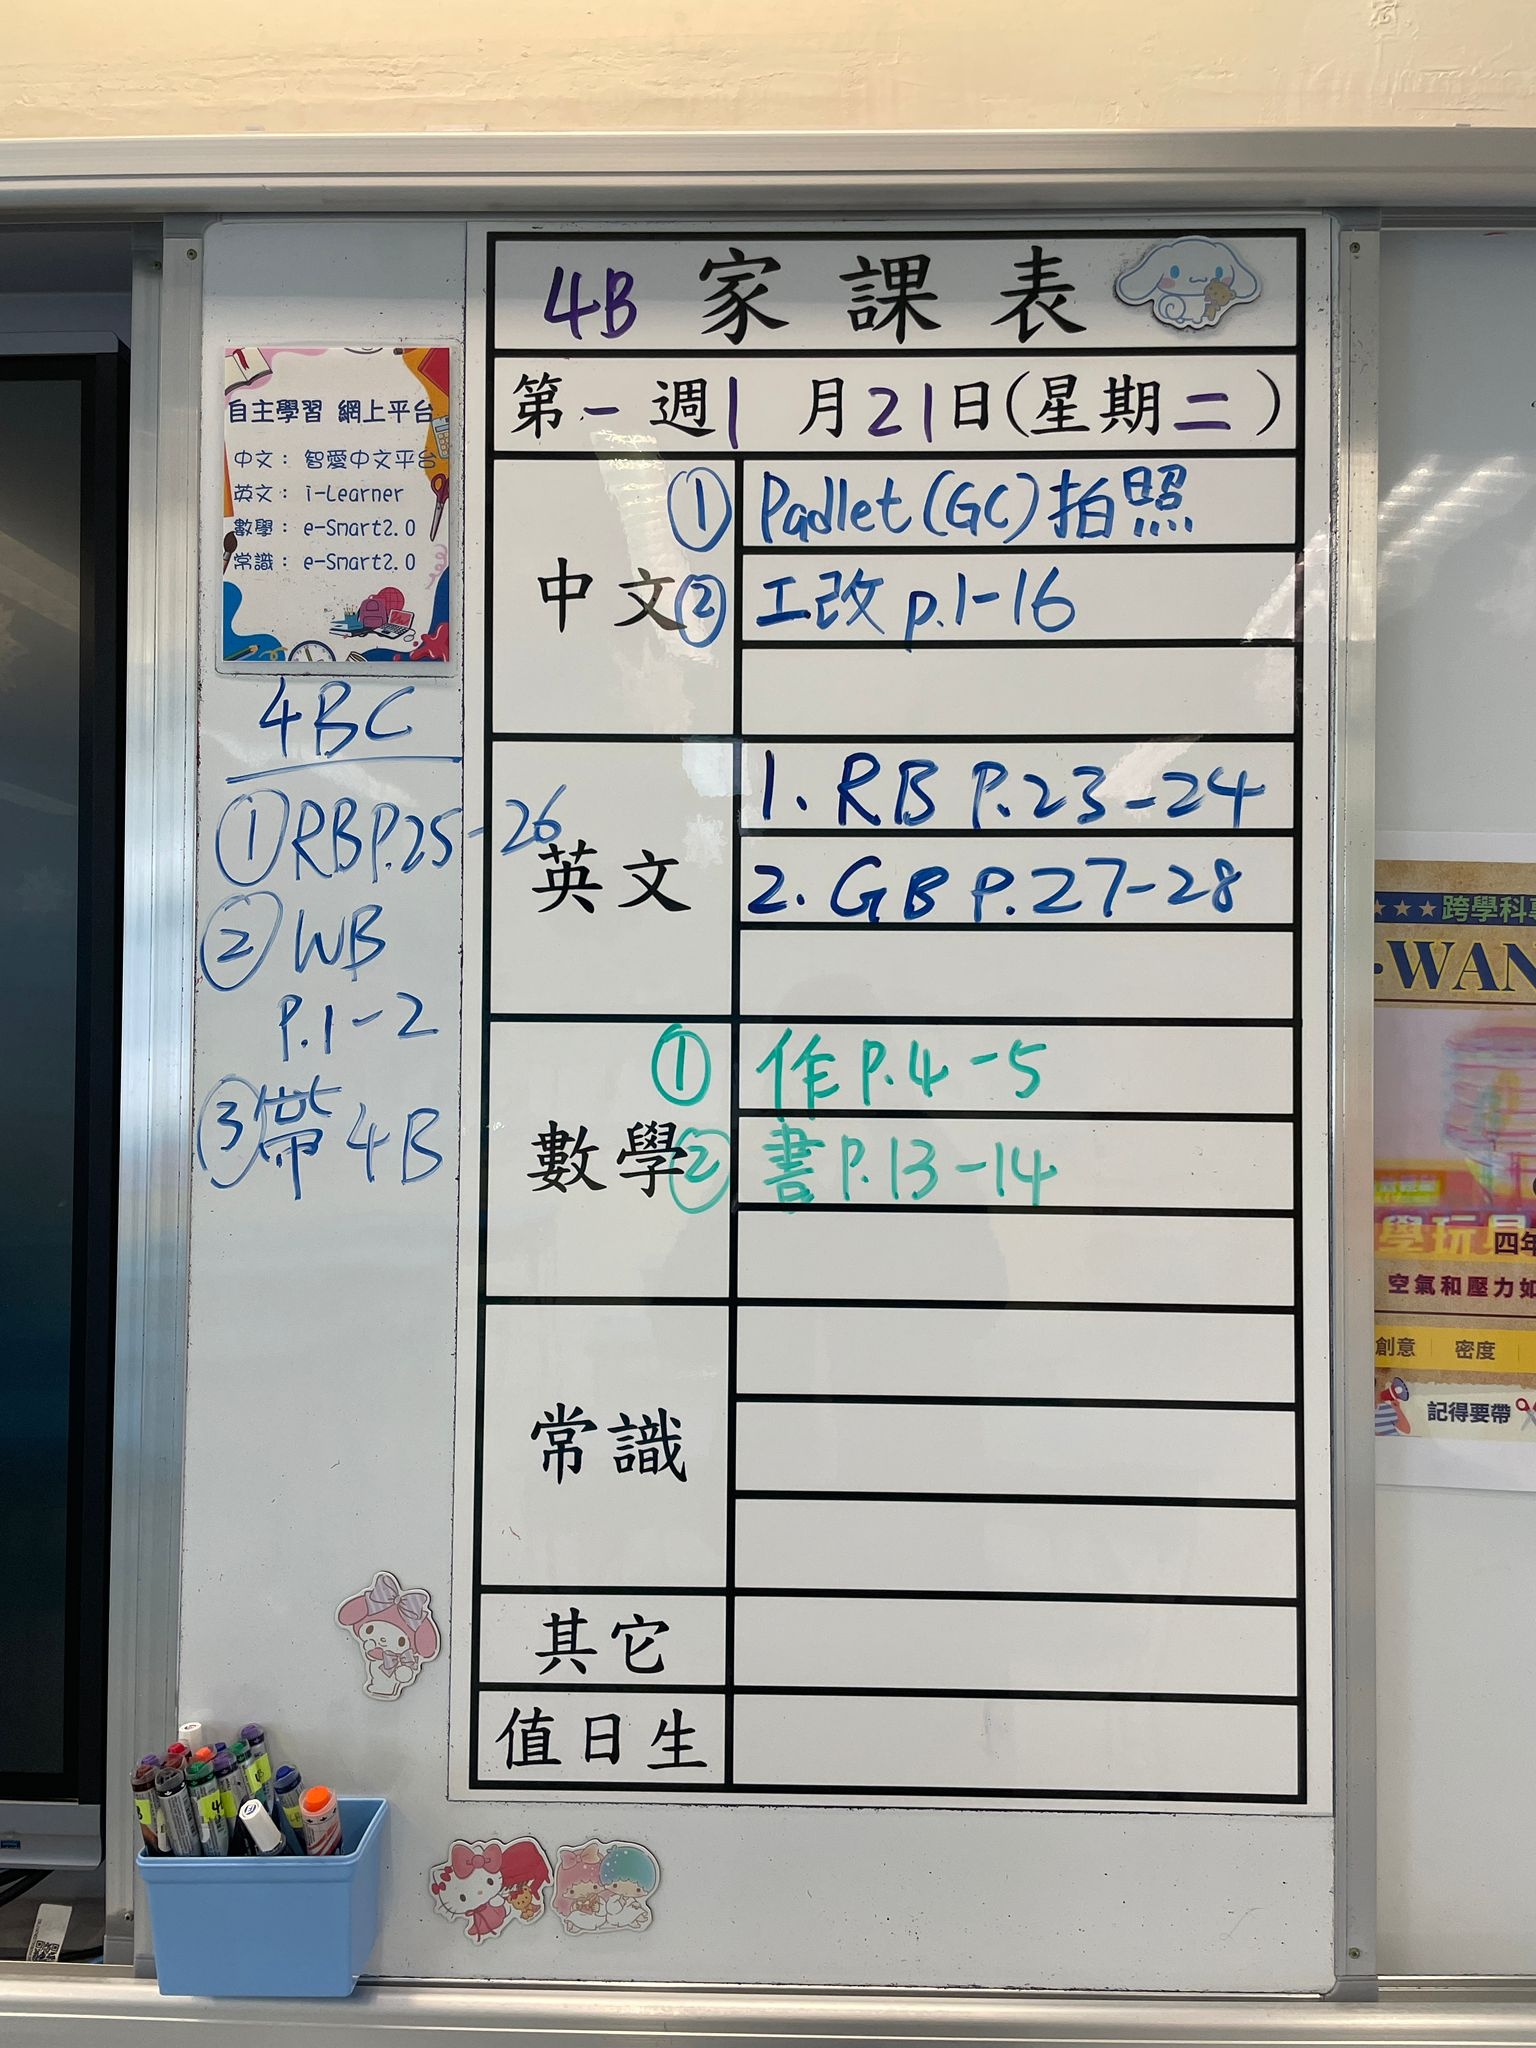 4B 家課表
第一週 1月21日(星期二)
自主學習 網上平台
中文： 智愛中文平台
英文： i-Learner
數學： e-Smart2.0
常識： e-Smart2.0
中文
① Padlet(GC)拍照
② 工改 p.1-16
4BC
① RB P.25-26
② WB
P.1-2
③ 帶 4B
英文
1. RB P.23-24
2. GB P.27-28
數學
① 作 P.4-5
② 書 P.13-14
常識
其它
值日生
★★★跨學科
WAN
學玩具
四年
空氣和壓力如
創意
密度
記得要帶